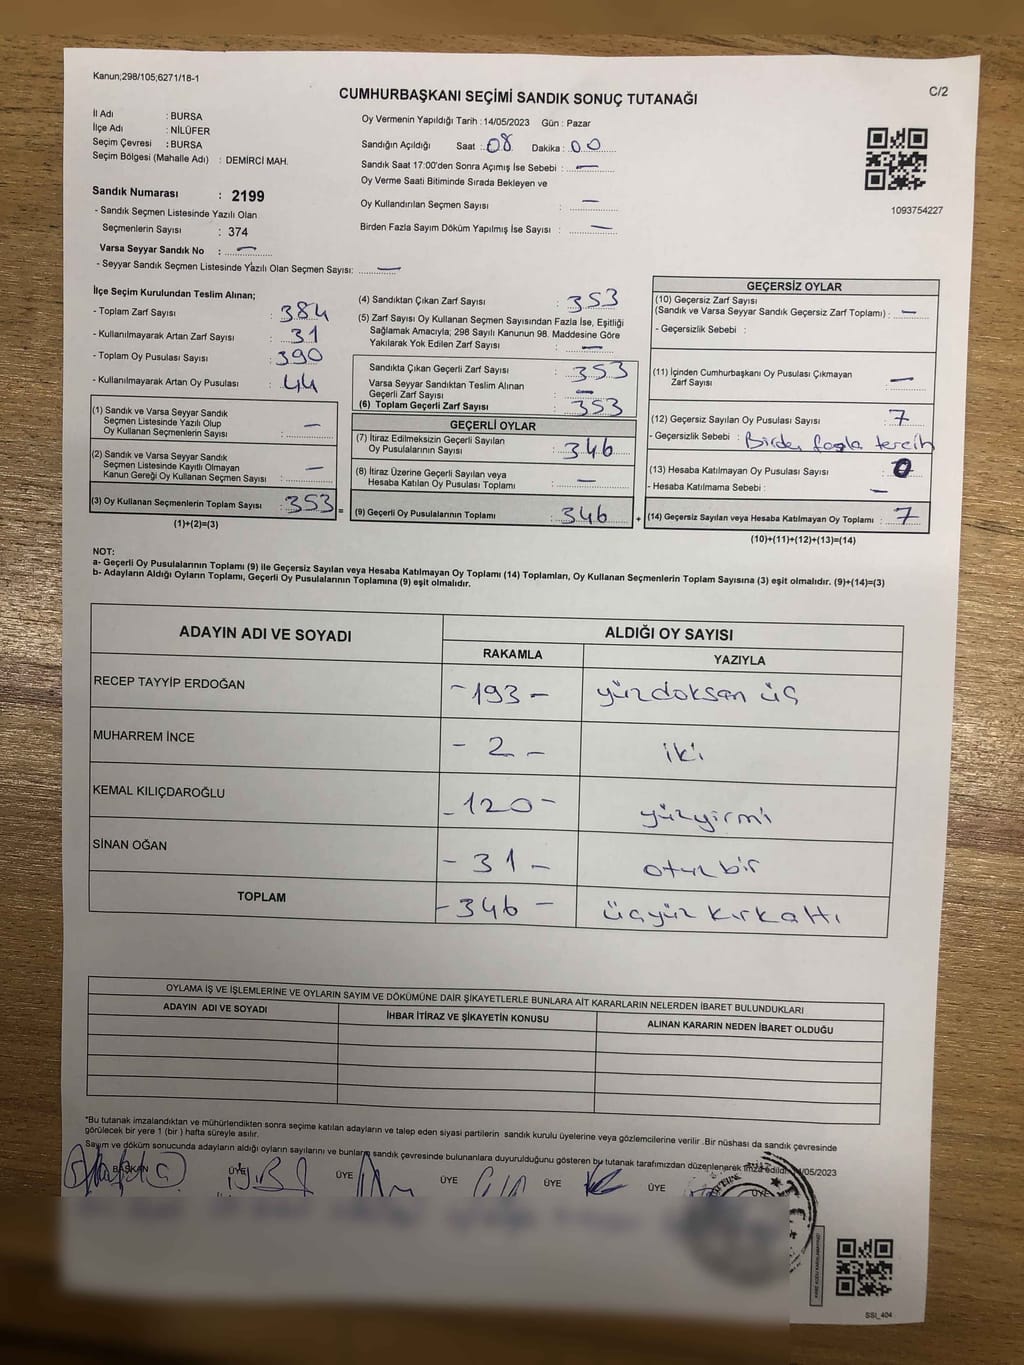 Kanun;298/105;6271/18-1
C/2
CUMHURBAŞKANI SEÇİMİ SANDIK SONUÇ TUTANAĞI
İl Adı : BURSA
İlçe Adı : NİLÜFER
Seçim Çevresi : BURSA
Seçim Bölgesi (Mahalle Adı) : DEMİRCİ MAH.
Sandık Numarası : 2199
- Sandık Seçmen Listesinde Yazılı Olan
Seçmenlerin Sayısı : 374
Varsa Seyyar Sandık No : —
- Seyyar Sandık Seçmen Listesinde Yazılı Olan Seçmen Sayısı: —
Oy Vermenin Yapıldığı Tarih : 14/05/2023 Gün : Pazar
Sandığın Açıldığı Saat : 08 Dakika : 00
Sandık Saat 17:00'den Sonra Açımış İse Sebebi : —
Oy Verme Saati Bitiminde Sırada Bekleyen ve
Oy Kullandırılan Seçmen Sayısı : —
Birden Fazla Sayım Döküm Yapılmış İse Sayısı : —
1093754227
İlçe Seçim Kurulundan Teslim Alınan;
- Toplam Zarf Sayısı : 384
- Kullanılmayarak Artan Zarf Sayısı : 31
- Toplam Oy Pusulası Sayısı : 390
- Kullanılmayarak Artan Oy Pusulası : 44
(1) Sandık ve Varsa Seyyar Sandık
Seçmen Listesinde Yazılı Olup
Oy Kullanan Seçmenlerin Sayısı : —
(2) Sandık ve Varsa Seyyar Sandık
Seçmen Listesinde Kayıtlı Olmayan
Kanun Gereği Oy Kullanan Seçmen Sayısı : —
(3) Oy Kullanan Seçmenlerin Toplam Sayısı : 353 =
(1)+(2)=(3)
(4) Sandıktan Çıkan Zarf Sayısı : 353
(5) Zarf Sayısı Oy Kullanan Seçmen Sayısından Fazla İse, Eşitliği
Sağlamak Amacıyla; 298 Sayılı Kanunun 98. Maddesine Göre
Yakılarak Yok Edilen Zarf Sayısı : —
Sandıkta Çıkan Geçerli Zarf Sayısı : 353
Varsa Seyyar Sandıktan Teslim Alınan
Geçerli Zarf Sayısı : —
(6) Toplam Geçerli Zarf Sayısı : 353
GEÇERLİ OYLAR
(7) İtiraz Edilmeksizin Geçerli Sayılan
Oy Pusulalarının Sayısı : 346
(8) İtiraz Üzerine Geçerli Sayılan veya
Hesaba Katılan Oy Pusulası Toplamı : —
(9) Geçerli Oy Pusulalarının Toplamı : 346 +
GEÇERSİZ OYLAR
(10) Geçersiz Zarf Sayısı
(Sandık ve Varsa Seyyar Sandık Geçersiz Zarf Toplamı) : —
- Geçersizlik Sebebi :
(11) İçinden Cumhurbaşkanı Oy Pusulası Çıkmayan
Zarf Sayısı : —
(12) Geçersiz Sayılan Oy Pusulası Sayısı : 7
- Geçersizlik Sebebi : Birden fazla tercih
(13) Hesaba Katılmayan Oy Pusulası Sayısı : 0
- Hesaba Katılmama Sebebi : —
(14) Geçersiz Sayılan veya Hesaba Katılmayan Oy Toplamı : 7
(10)+(11)+(12)+(13)=(14)
NOT:
a- Geçerli Oy Pusulalarının Toplamı (9) ile Geçersiz Sayılan veya Hesaba Katılmayan Oy Toplamı (14) Toplamları, Oy Kullanan Seçmenlerin Toplam Sayısına (3) eşit olmalıdır. (9)+(14)=(3)
b- Adayların Aldığı Oyların Toplamı, Geçerli Oy Pusulalarının Toplamına (9) eşit olmalıdır.
ADAYIN ADI VE SOYADI
ALDIĞI OY SAYISI
RAKAMLA YAZIYLA
RECEP TAYYİP ERDOĞAN - 193 - yüzdoksan üç
MUHARREM İNCE - 2 - iki
KEMAL KILIÇDAROĞLU - 120 - yüzyirmi
SİNAN OĞAN - 31 - otuzbir
TOPLAM - 346 - üçyüz kırkaltı
OYLAMA İŞ VE İŞLEMLERİNE VE OYLARIN SAYIM VE DÖKÜMÜNE DAİR ŞİKAYETLERLE BUNLARA AİT KARARLARIN NELERDEN İBARET BULUNDUKLARI
ADAYIN ADI VE SOYADI İHBAR İTİRAZ VE ŞİKAYETİN KONUSU ALINAN KARARIN NEDEN İBARET OLDUĞU
*Bu tutanak imzalandıktan ve mühürlendikten sonra seçime katılan adayların ve talep eden siyasi partilerin sandık kurulu üyelerine veya gözlemcilerine verilir .Bir nüshası da sandık çevresinde
görülecek bir yere 1 (bir ) hafta süreyle asılır.
Sayım ve döküm sonucunda adayların aldığı oyların sayılarını ve bunların sandık çevresinde bulunanlara duyurulduğunu gösteren bu tutanak tarafımızdan düzenlenerek imza edildi. 14/05/2023
BAŞKAN ÜYE ÜYE ÜYE ÜYE ÜYE ÜYE
SSI_404